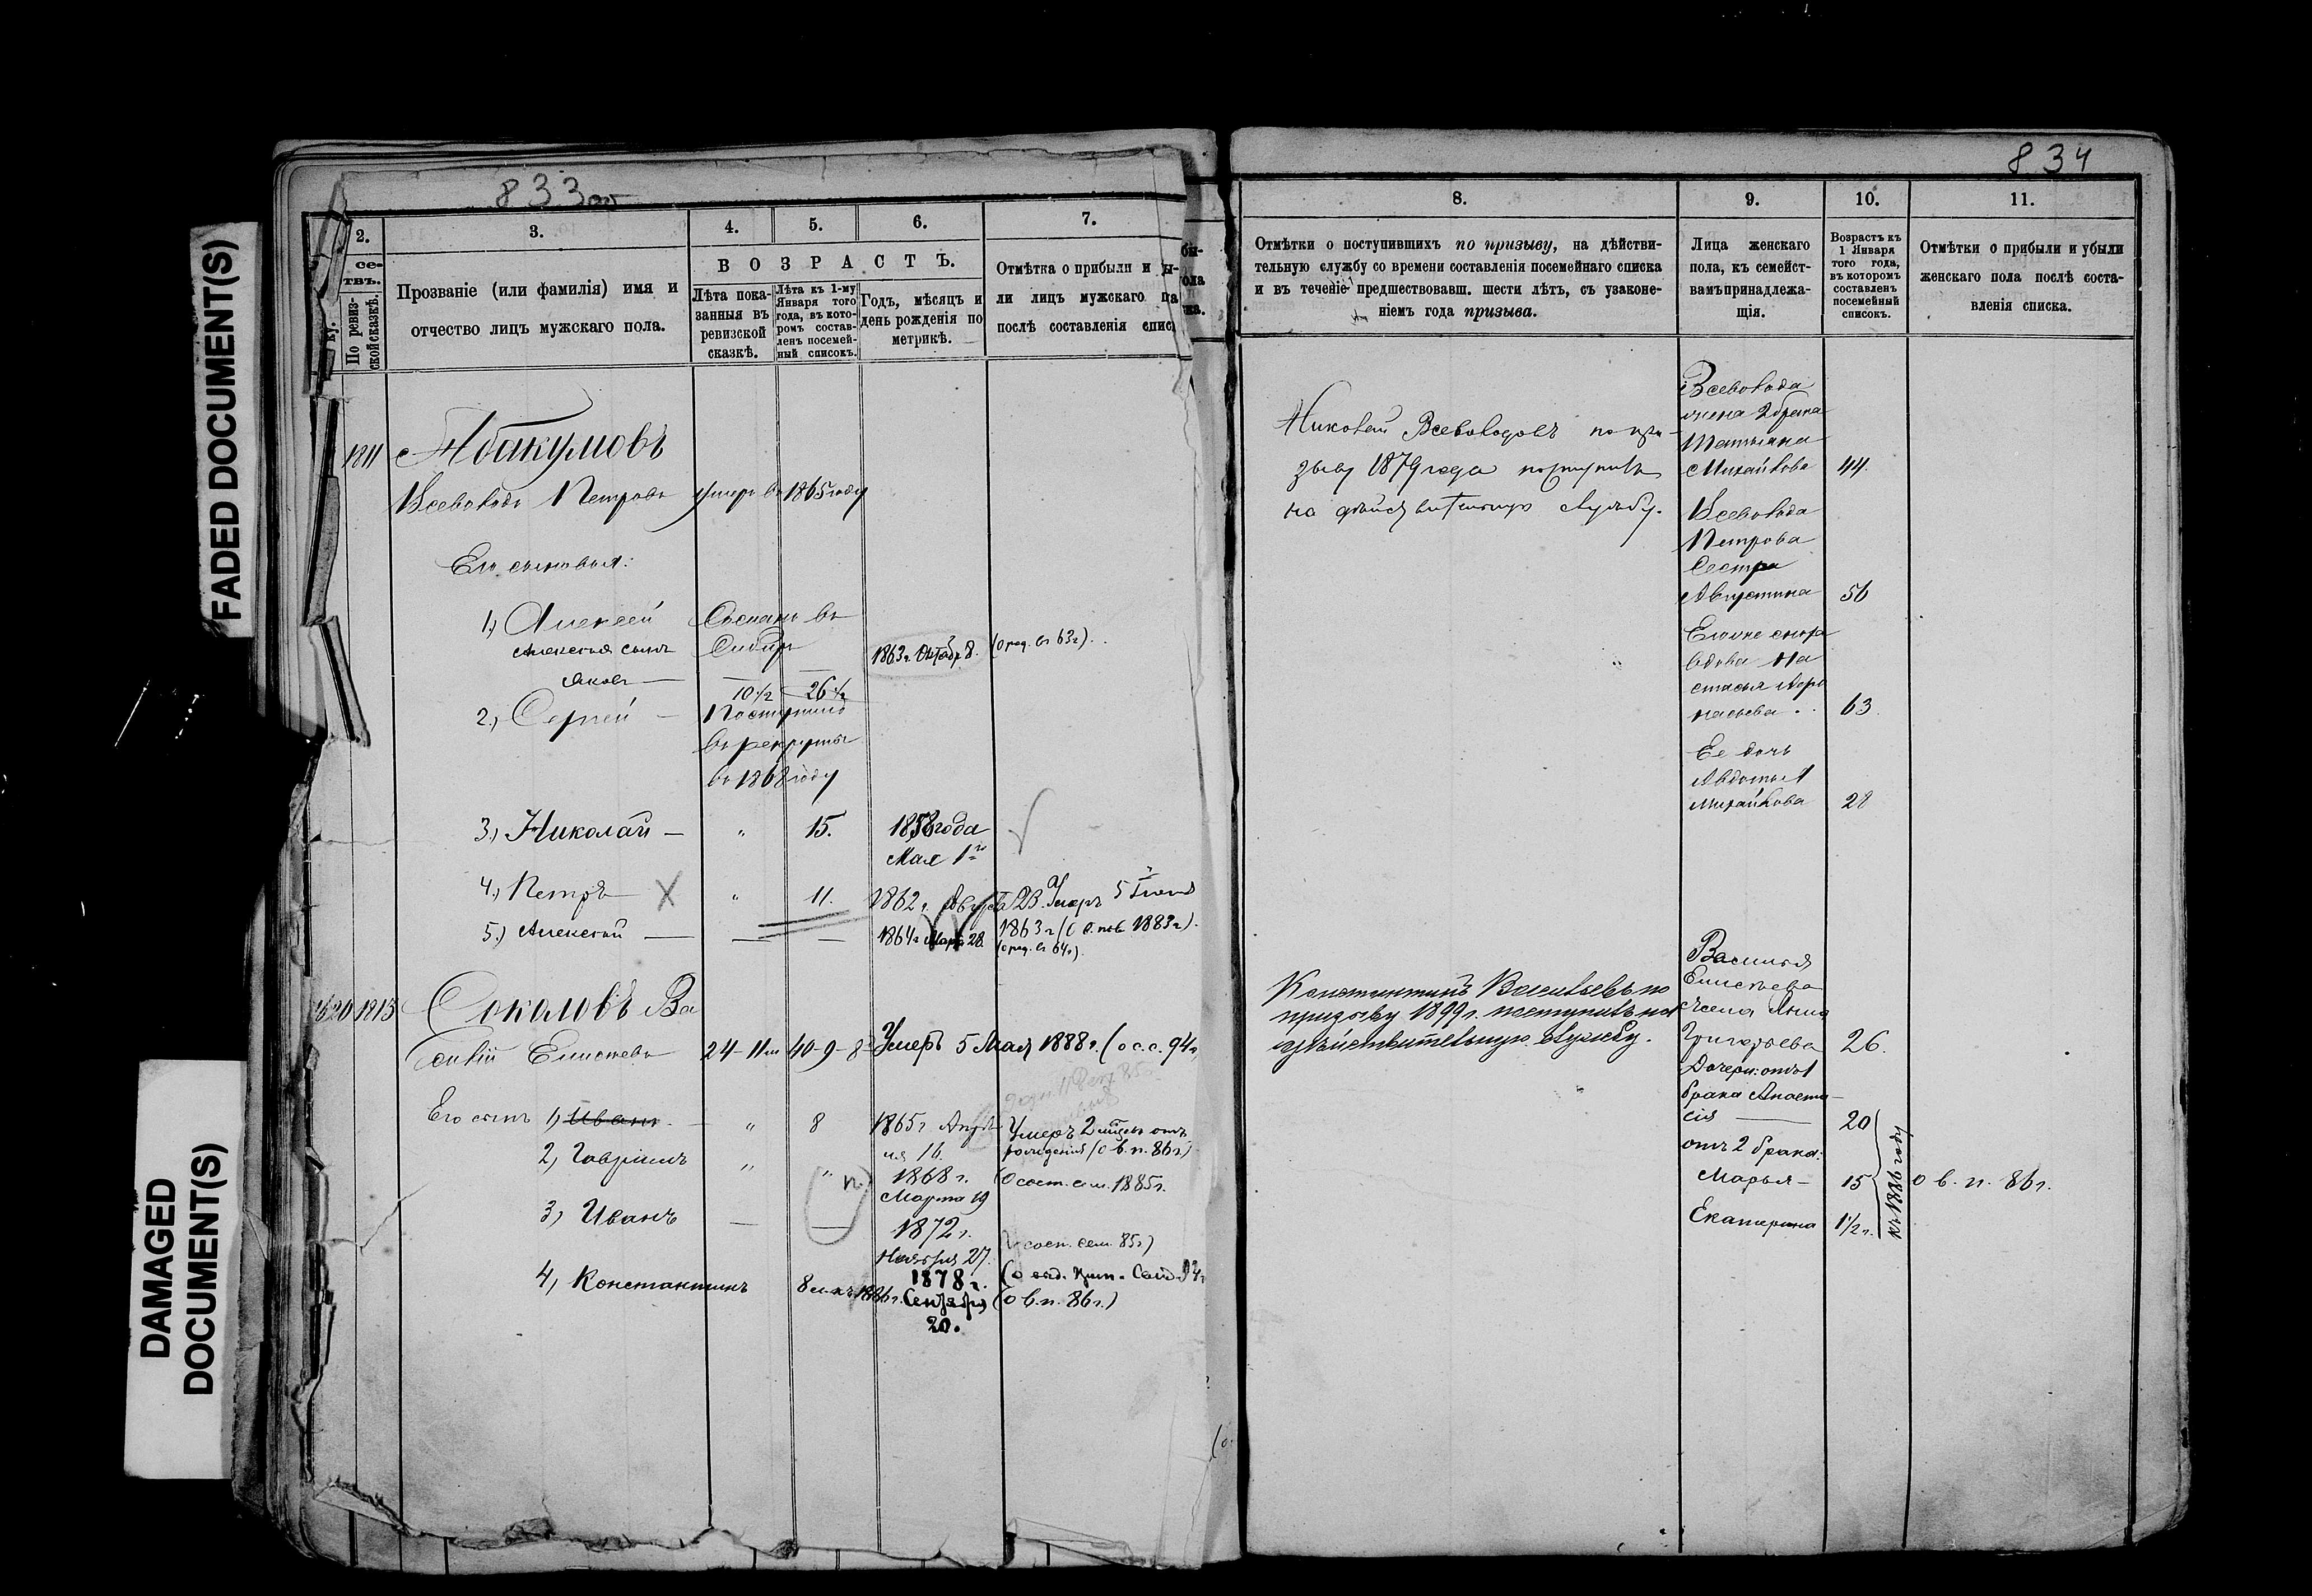 FADED DOCUMENT(S)
DAMAGED
DOCUMENT(S)
833об
2.
3.
4.
5.
6.
7.
се-
твъ.
ку.
По ревиз-
ской сказкѣ.
Прозваніе (или фамилія) имя и
отчество лицъ мужскаго пола.
ВОЗРАСТЪ.
Лѣта пока-
занныя въ
ревизской
сказкѣ.
Лѣта къ 1-му
Января того
года, въ кото-
ромъ состав-
ленъ посемей-
ный списокъ.
Годъ, мѣсяцъ и
день рожденія по
метрикѣ.
Отмѣтка о прибыли и ы-
ли лицъ мужскаго па
послѣ составленія спис.
бы-
ола
ка.
1811
Абакумовъ
Всеволодъ Петровъ умеръ въ 1865 году
Его сыновья:
1) Алексей Сосланъ въ
Алексея сынъ Сибирь
Яковъ —
1863 г. Октябр 8. (о род. въ 63 г).
10 1/2 26 1/2
2) Сергей — Поступилъ
въ рекруты
въ 1868 году
3) Николай — „ 15. 1858 года
Мая 1го
4) Петръ — X „ 11. 1862 г. Августа 23. Умеръ 5
1863 г (О в. пов 1883 г).
5) Алексей — — — 1864 г Марта 28. (о род. въ 64 г).
1620 1813 Соколовъ Ва
силій Елисеевъ 24-11 м 40-9-8 Умеръ 5 Мая 1888 г. (о с.с. 94 г
Его сынъ 1) Иванъ — „ 8 1865 г Апрѣ
ля 16.
Умеръ 2 мѣсяц отъ
рожденія (о в. п. 86 г.)
2) Гавріилъ „ „ 1868 г.
Марта 19
(О сост. сем. 1885 г.
3) Иванъ — — 1872 г.
Ноября 27.
сост. сем. 85 г)
4) Константинъ 8 л. къ 1886 г. 1878 г.
Сентября
20.
(о в. п. 86 г.)
834
8.
9.
10.
11.
Отмѣтки о поступившихъ по призыву, на дѣйстви-
тельную службу со времени составленія посемейнаго списка
и въ теченіе предшествовавш. шести лѣтъ, съ узаконе-
ніемъ года призыва.
Лица женскаго
пола, къ семейст-
вамъ принадлежа-
щія.
Возрастъ къ
1 Января
того года,
въ которомъ
составленъ
посемейный
списокъ.
Отмѣтки о прибыли и убыли
женскаго пола послѣ соста-
вленія списка.
Николай Всеволодовъ по при-
зыву 1879 года поступилъ
на дѣйствительную службу.
Всеволода
жена 2 брака
Татьяна
Михайлова 44.
Всеволода
Петрова
Сестра
Августина 56
Его же сноха
вдова На
стасья Афа
насьева 63.
Ее дочь
Авдотья
Михайлова 28
Константинъ Васильевъ по
призыву 1899 г. поступилъ на
дѣйствительную службу.
Василья
Елисеева
жена Анна
Григорьева 26.
Дочери: отъ 1
брака Анаста-
сія — 20
отъ 2 брака:
Марья — 15
Екатерина 1 1/2 г.
къ 1886 году
о в. п. 86 г.